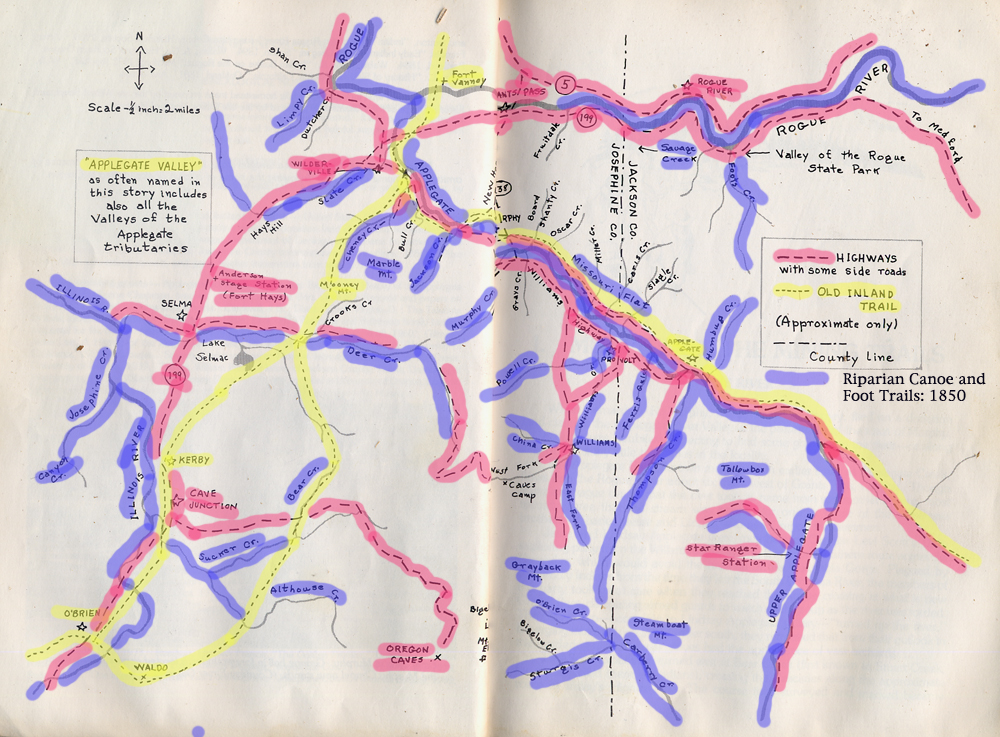 N
Scale - ½ inch = 2 miles
"APPLEGATE VALLEY"
as often named in
this story includes
also all the
Valleys of the
Applegate
tributaries
Shan Cr.
ROGUE
Limpy Cr.
Dutcher Cr.
Fort
Vannoy
ANTS PASS
5
199
ROGUE
RIVER
RIVER
ROGUE
To Medford
Fruitdale Cr.
Savage
Creek
Foots Cr.
Valley of the Rogue
State Park
JOSEPHINE CO.
JACKSON CO.
WILDER
VILLE
Slate Cr.
Hays
Hill
APPLEGATE
New H
38
RPHY
Board
Shanty Cr.
Oscar Cr.
Miller Cr.
Caris Cr.
Slagle
Cr.
Missouri Flat
Cheney Cr.
Bull Cr.
Marble
Mt.
Jackson Cr.
Murphy Cr.
Grays Cr.
Williams
Highway
HIGHWAYS
with some side roads
OLD INLAND
TRAIL
(Approximate only)
County line
Riparian Canoe and
Foot Trails: 1850
Anderson
Stage Station
(Fort Hays)
Mooney
Mt.
Crooks Cr.
ILLINOIS R.
SELMA
Lake
Selmac
Deer Cr.
199
Josephine Cr.
Canyon
Cr.
ILLINOIS RIVER
KERBY
CAVE
JUNCTION
Bear Cr.
Sucker Cr.
Althouse Cr.
O'BRIEN
WALDO
OREGON
CAVES
Powell Cr.
PROVOLT
APPLE-
GATE
Humbug Cr.
Williams Cr.
Ferris Gulch
China Cr.
WILLIAMS
West Fork
Caves
Camp
East Fork
Thompson Cr.
Tallowbox
Mt.
Star Ranger
Station
UPPER APPLEGATE
Grayback
Mt.
O'Brien Cr.
Bigelow Cr.
Sturgis Cr.
Steamboat
Mt.
Carberry Cr.